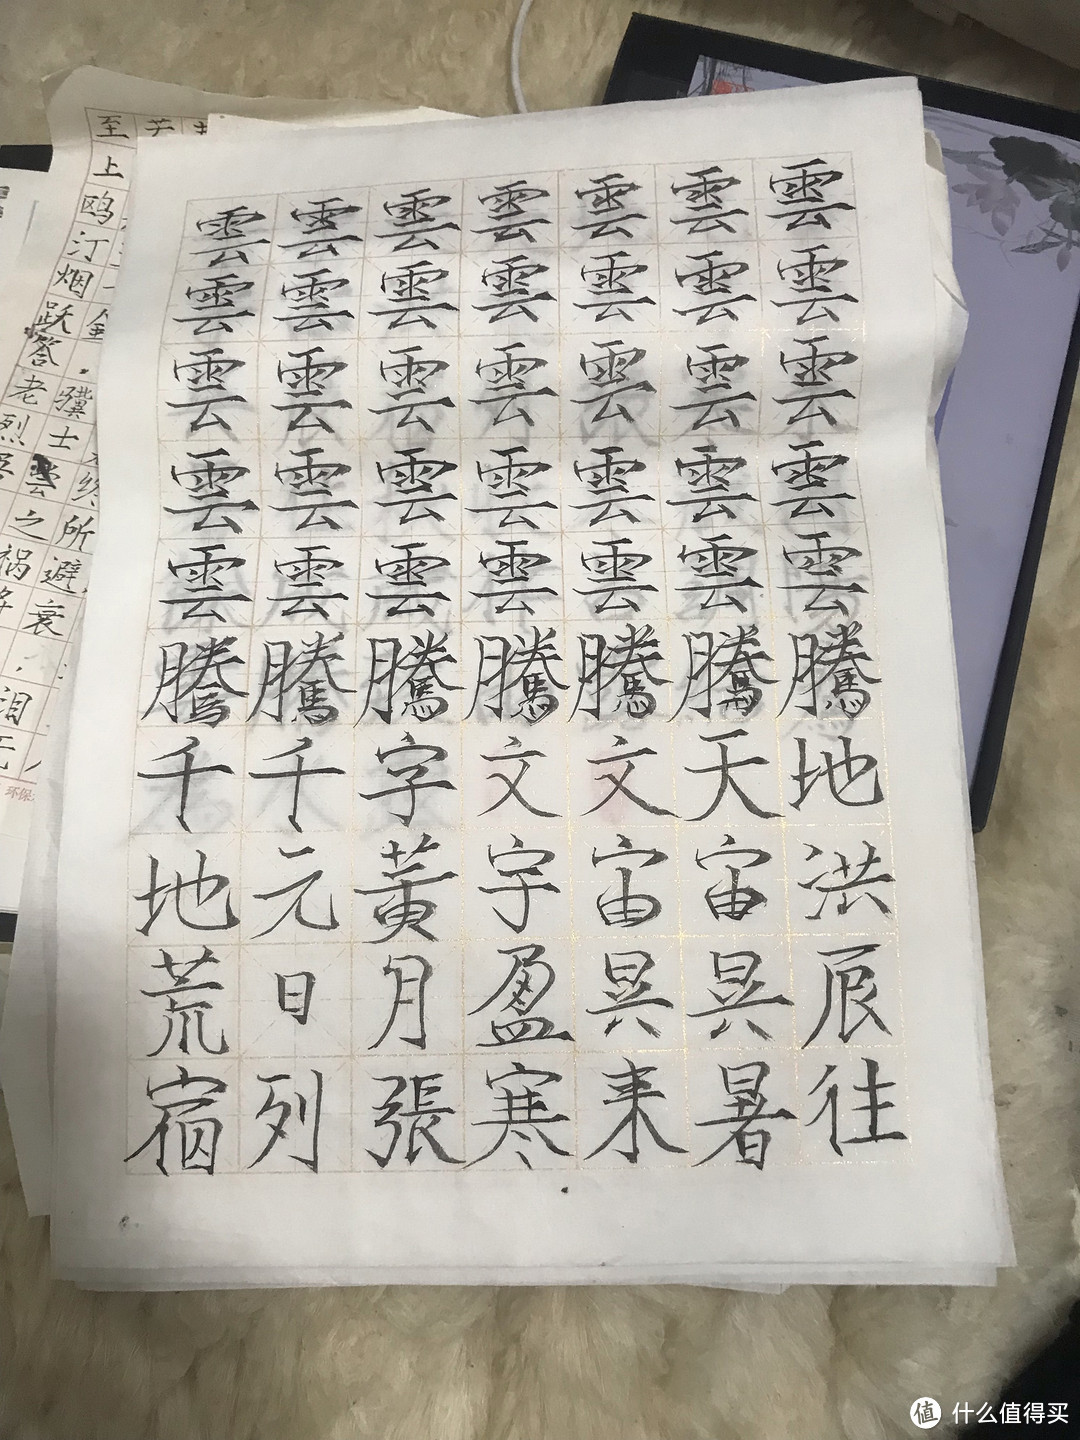 雲雲雲雲雲雲雲
雲雲雲雲雲雲雲
雲雲雲雲雲雲雲
雲雲雲雲雲雲雲
雲雲雲雲雲雲雲
騰騰騰騰騰騰騰
千千字文文天地
地元黄宇宙宙洪
荒日月盈昃昃辰
宿列張寒来暑往
至
上
鸥
汀
烟
跃金
答，
老骥
烈士
终
之所
祸避
衰
泪
环保
什么值得买